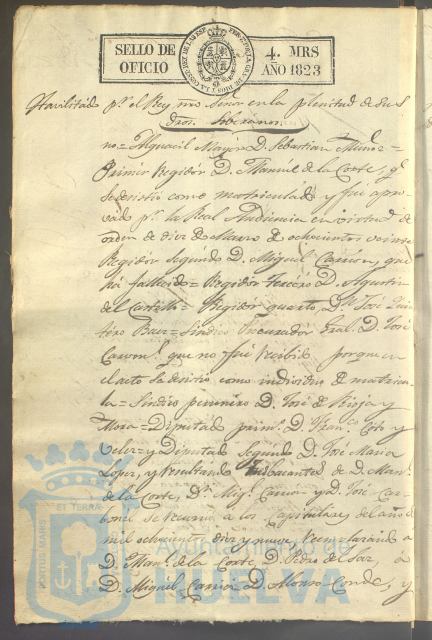 SELLO DE OFICIO
4. MRS
AÑO 1823
Havilitado pr. el Rey nro Señor en la plenitud de sus
dros. Soberanos.
no = Alguacil Mayor D. Sebastian Muñoz =
Primer Regidor D. Manuel de la Corte, qe.
se desistió como matriculado y fué apro-
vado pr. la Real Audiencia en virtud de
orden de diez de Marzo de ochocientos veinte
Regidor segundo D. Miguel Carrion, que
há fallecido = Regidor Tercero D. Agustin
del Castillo = Regidor quarto, Dn. José Quin-
tero Baez = Sindico Procurador Gral. D. José
Carvonl. que no fué recibido porque en
el acto se desistió como individuo de matricu-
la = Sindico personero D. José de Rioja y
Mora = Diputado primo. D. Franco. Coto y
Velez y Diputado segundo D. José Maria
Lopez, y resultando las bacantes de D. Manl.
de la Corte, Dn. Migl. Carrion y D. José Car-
bonel se reunió a los Capitulares del año de
mil ochocientos diez y nueve, reemplazando à
D. Manl. de la Corte, D. Pedro del Saz, à
D. Miguel Carrion D. Alonso Conde, y
PORTUS MARIS
ET TERRÆ
Ayuntamiento de
HUELVA